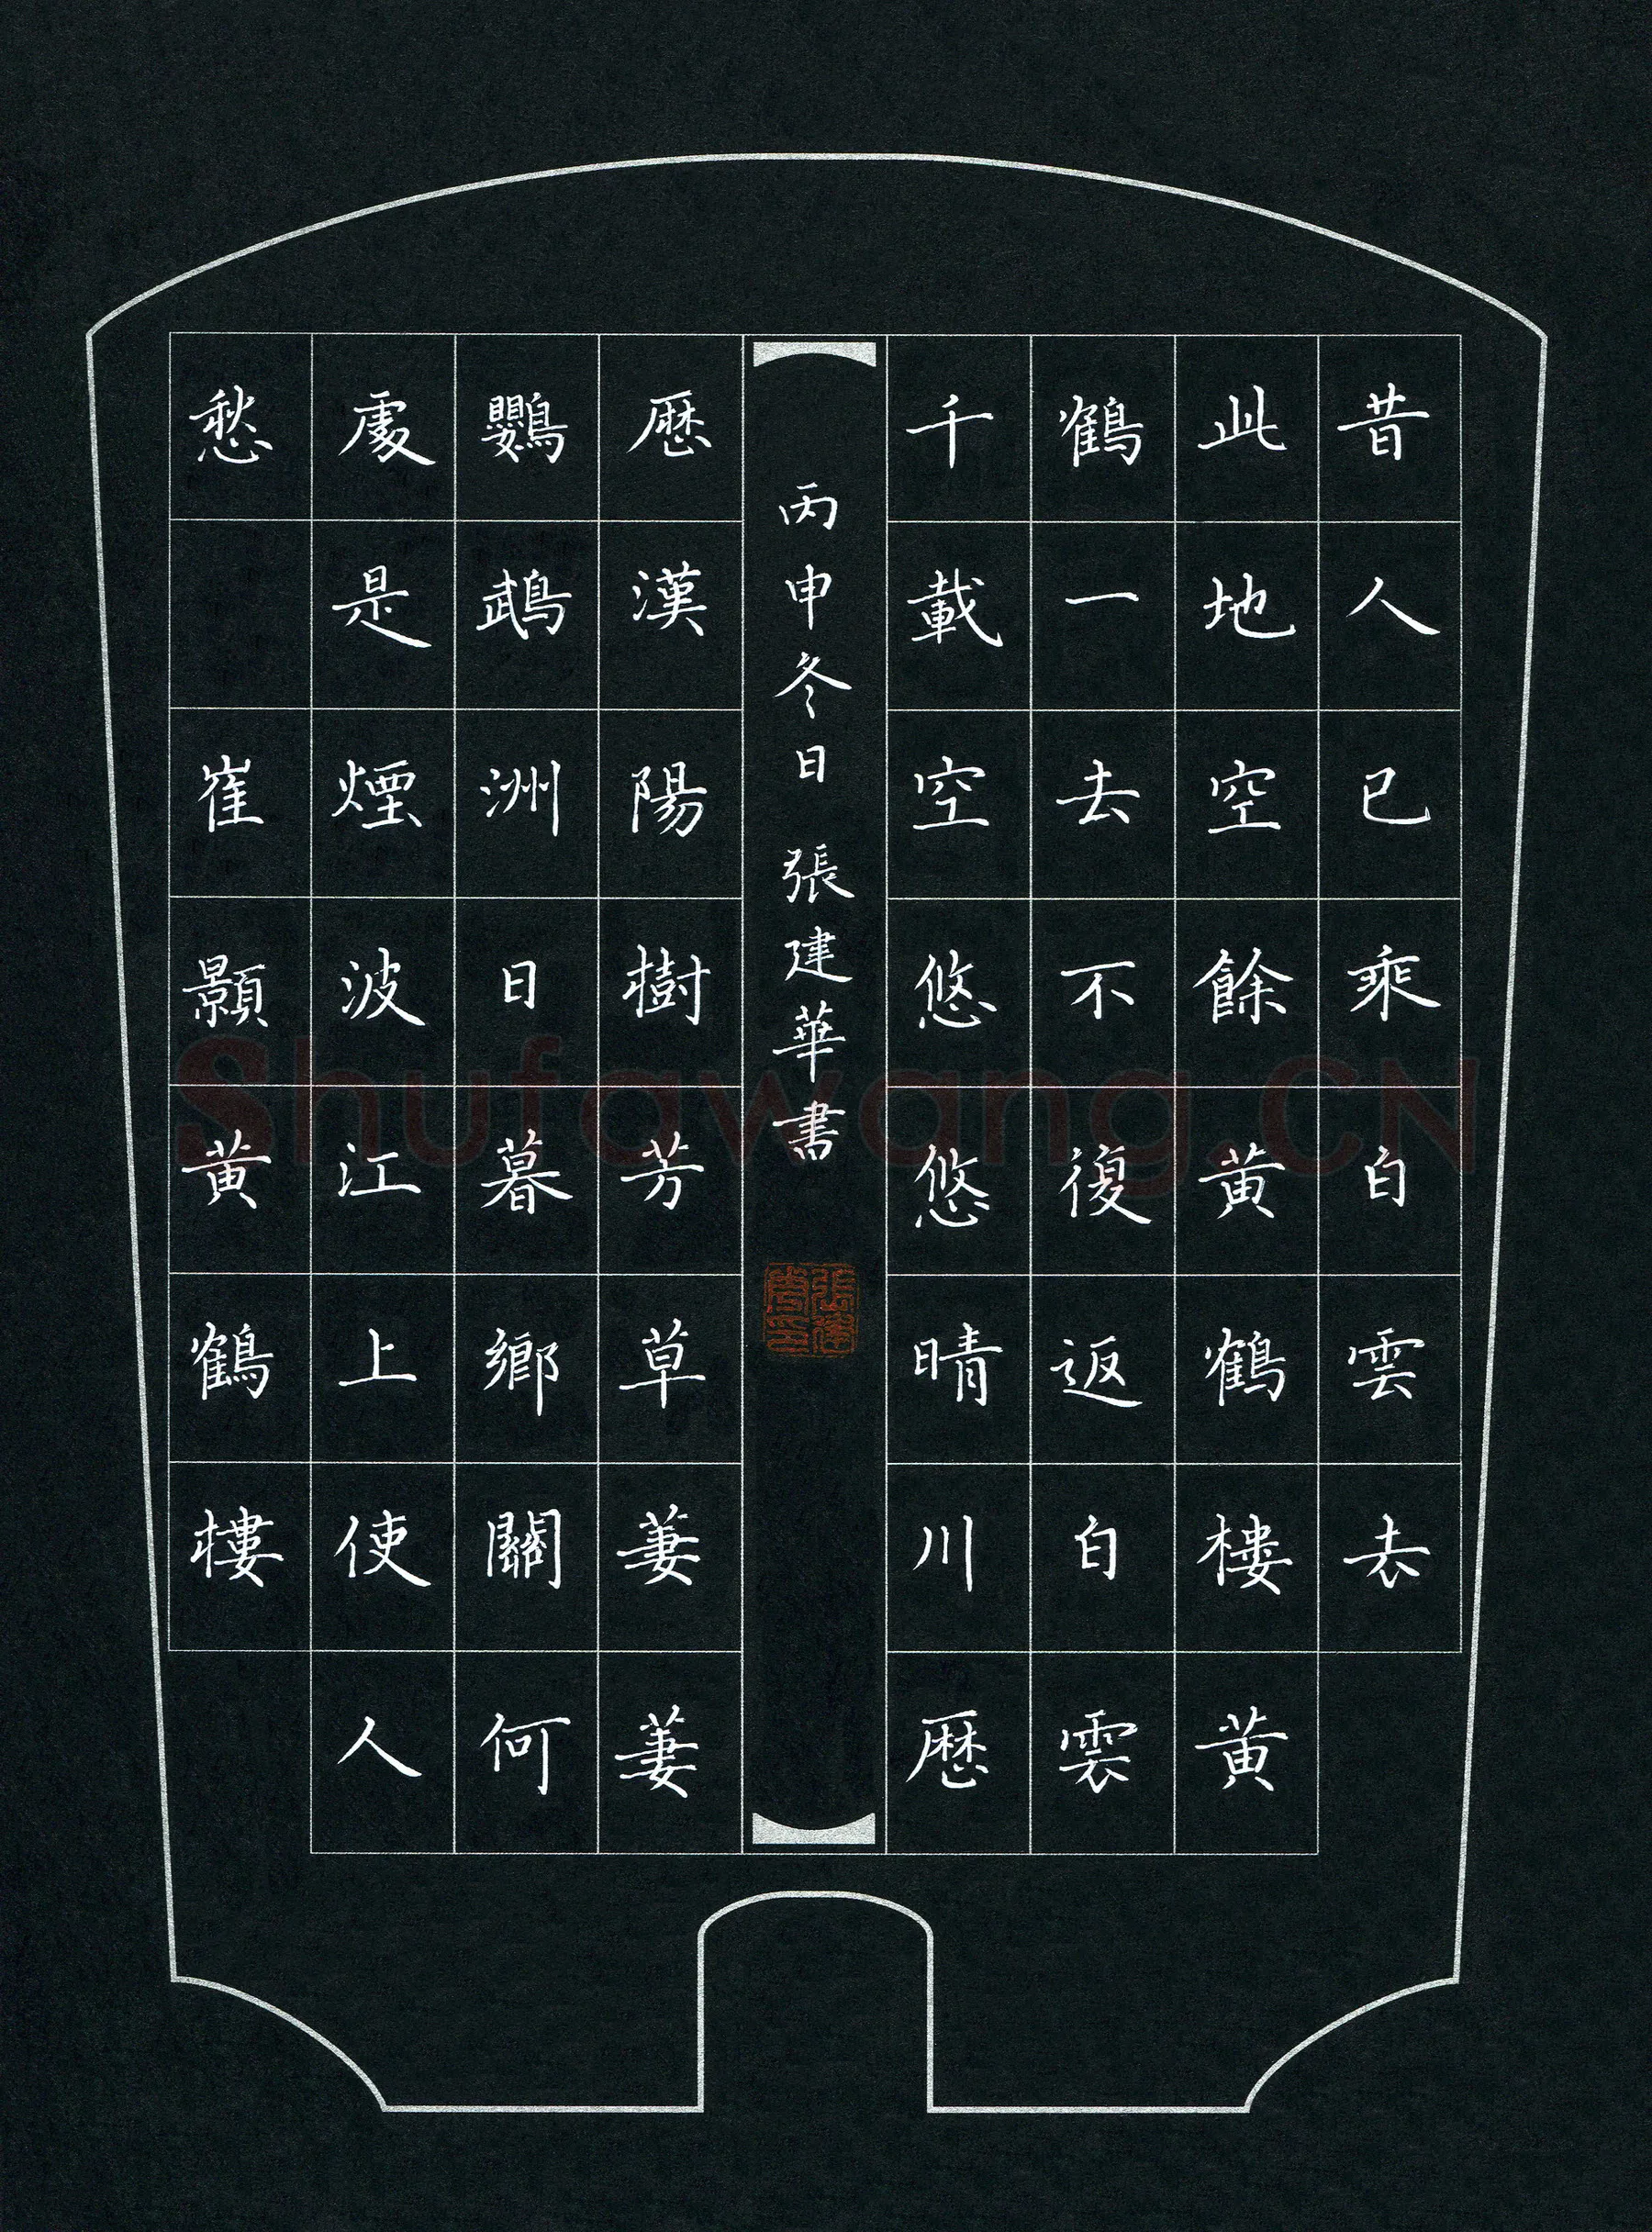 昔人已乘白雲去
此地空餘黄鶴樓黄
鶴一去不復返白雲
千載空悠悠晴川歷
丙申冬日 張建華書
歷漢陽樹芳草萋萋
鸚鵡洲日暮鄉關何
處是煙波江上使人
愁 崔顥黄鶴樓
張建華印
Shufawang.CN